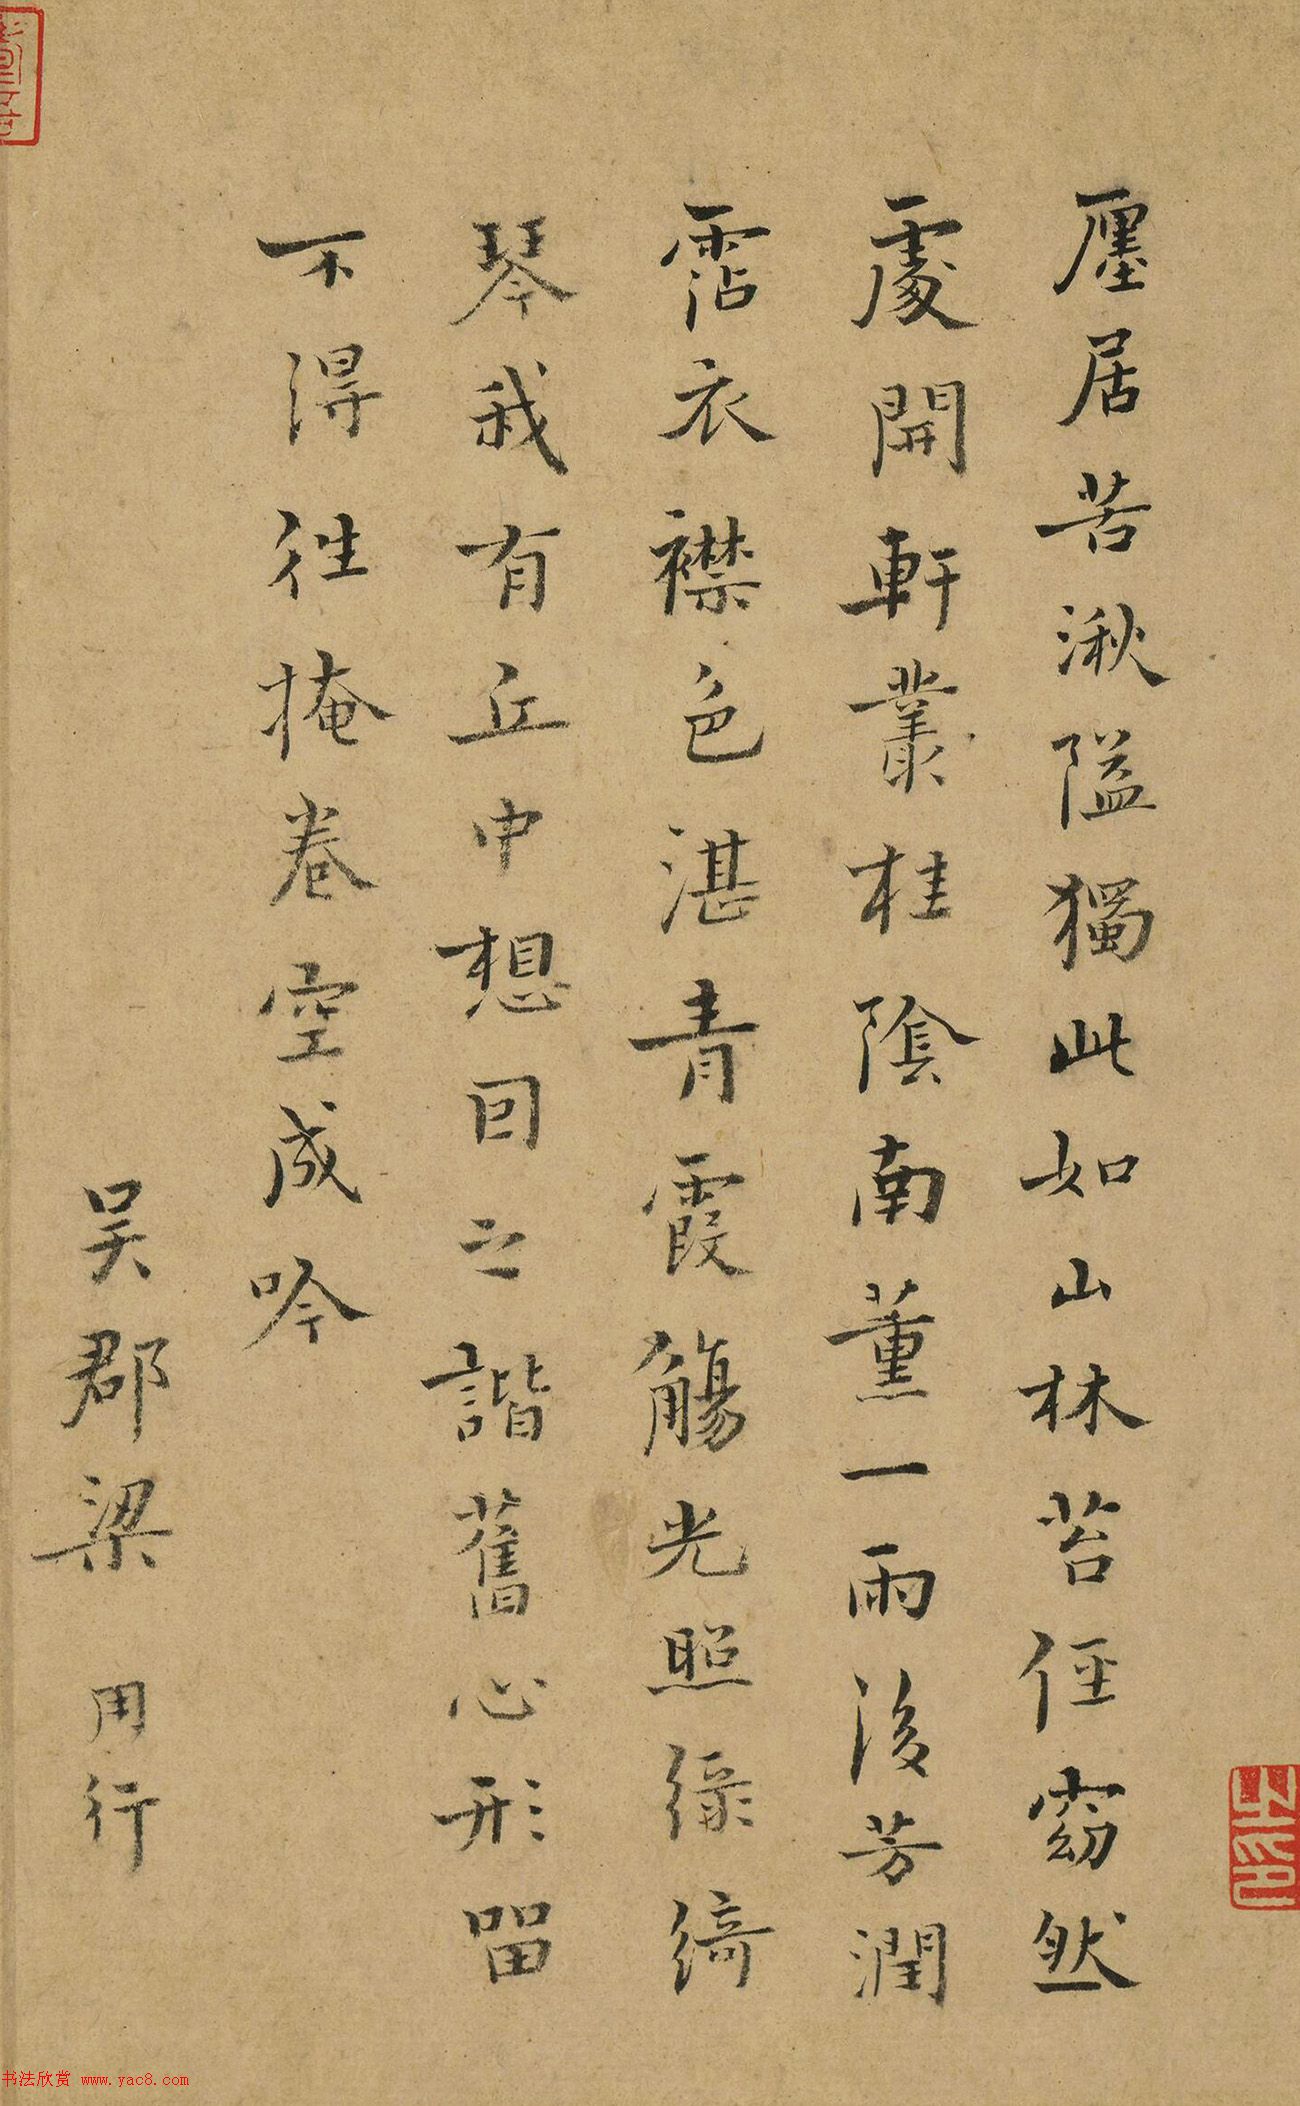 廛居苦湫隘獨此如山林苔徑窈然
處開軒叢桂陰南薰一雨後芳潤
霑衣襟色湛青霞觴光照綠綺
琴我有丘中想回之諧舊心形留
不得往掩卷空成吟
吴郡梁用行
书法欣赏 www.yac8.com